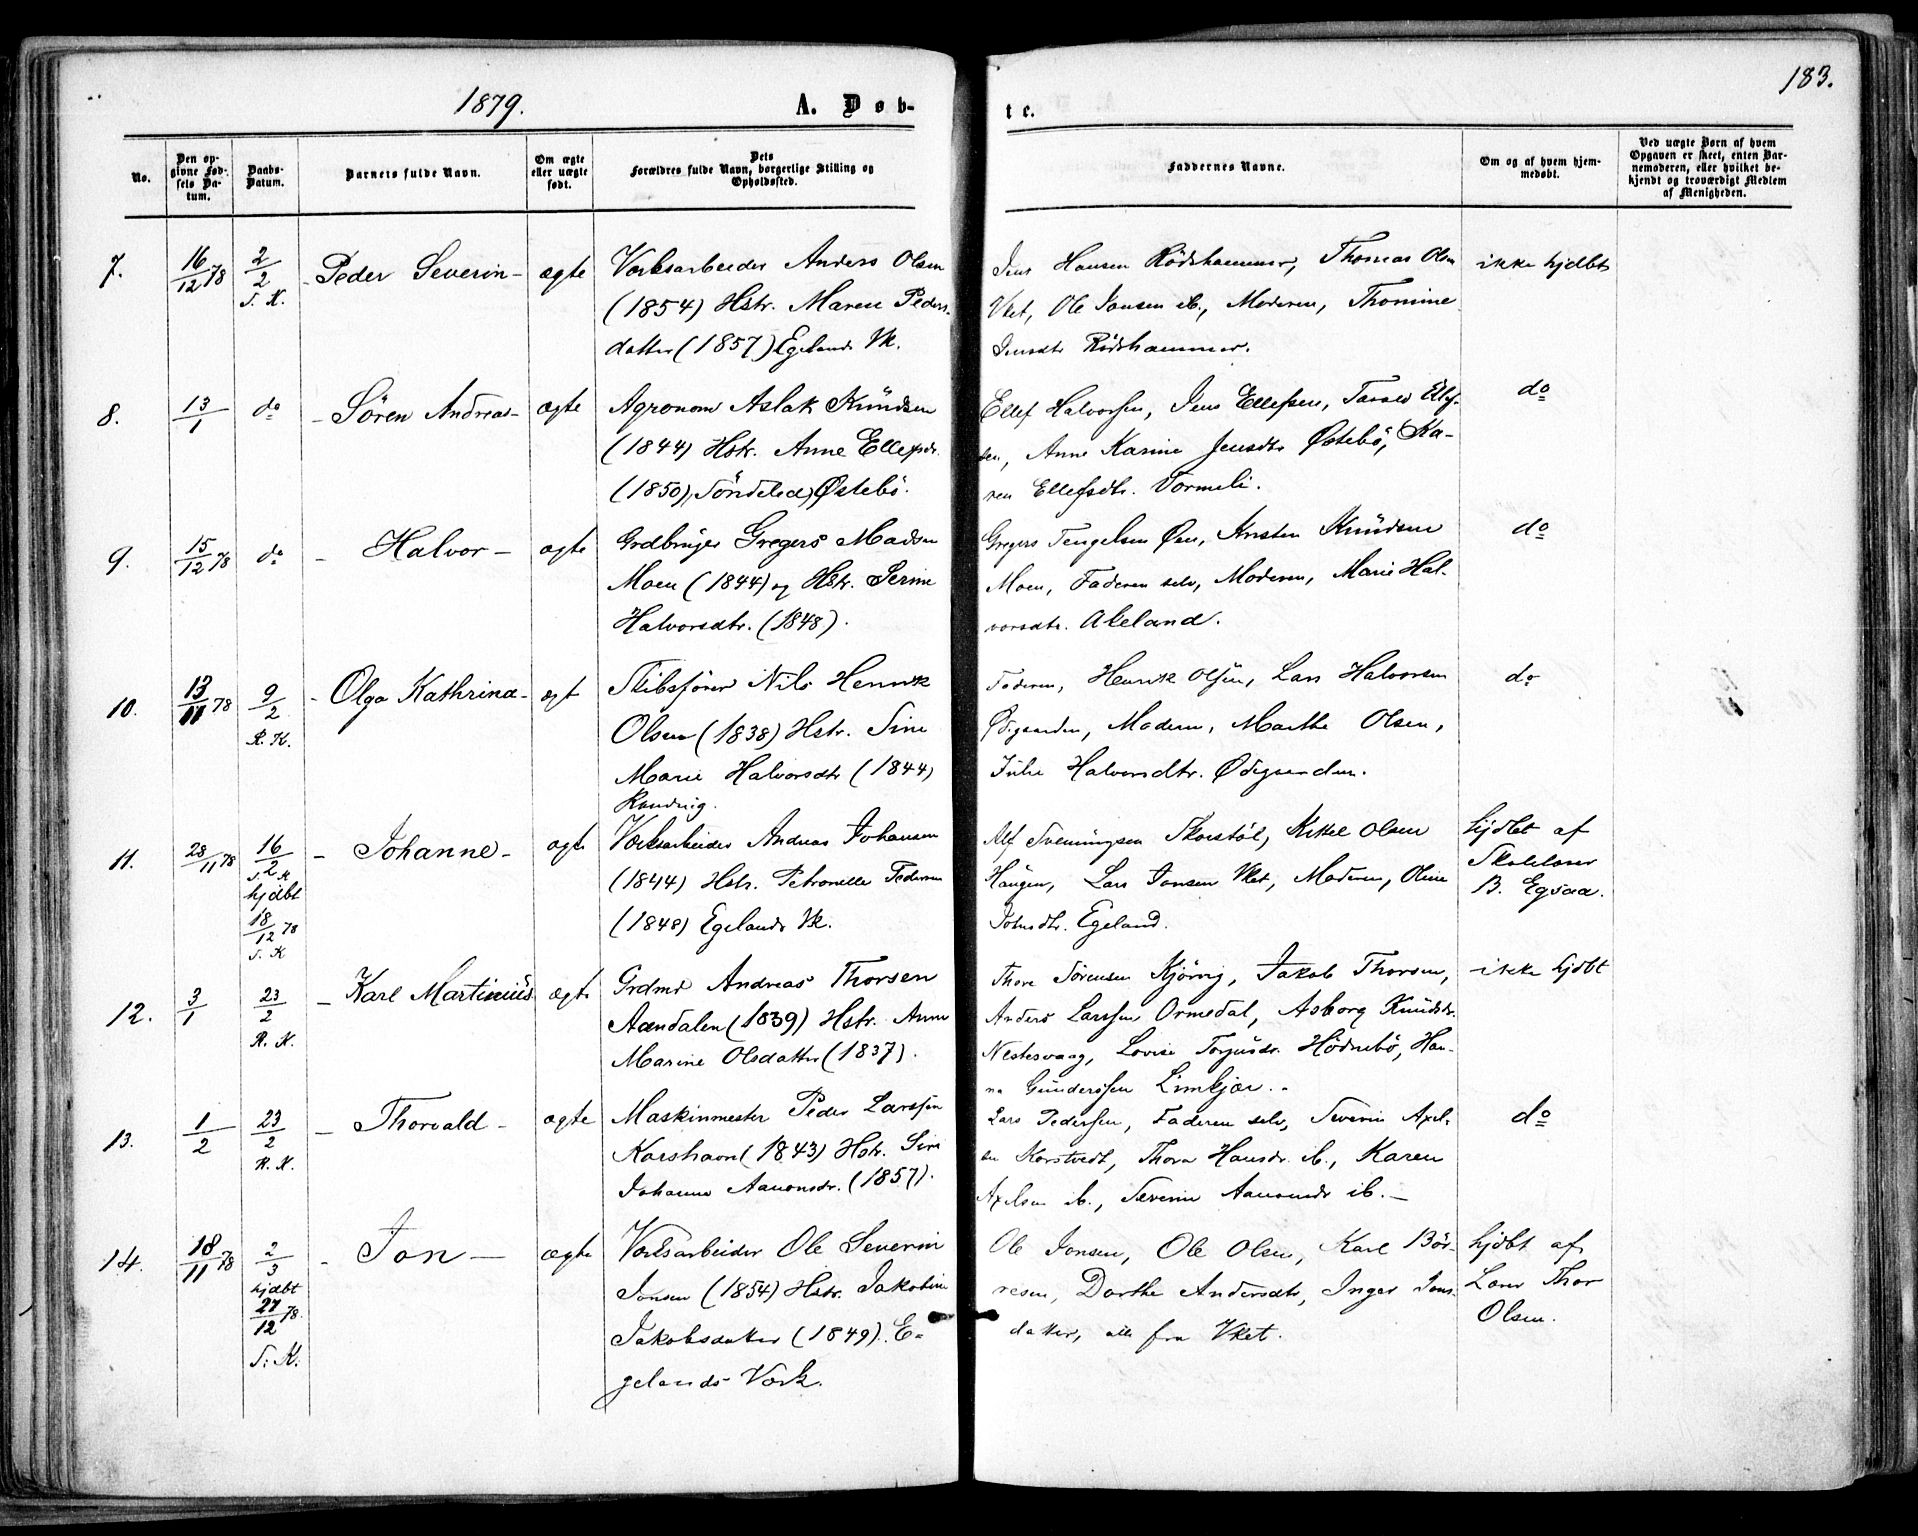 183.
1879. A. Døb-
te.
No.
Den op-
givne Fød-
sels Da-
tum.
Daabs-
Datum.
Barnets fulde Navn.
Om ægte
eller uægte
født.
Dets
Forældres fulde Navn, borgerlige Stilling og
Opholdssted.
Faddernes Navne.
Om og af hvem hjem-
medøbt.
Ved uægte Børn af hvem
Opgaven er skeet, enten Bar-
nemoderen, eller hvilket be-
kjendt og troværdigt Medlem
af Menigheden.
7. 16/12 78 2/2 S. K. - Peder Severin - ægte
Værksarbeider Anders Olsen
(1854) Hstr. Maren Peders-
datter (1857) Egelands Vk.
Jens Hansen Rødshammer, Thomas Olsen
Vket, Ole Jonsen ib., Moderen, Thomine
Jensdtr Rødshammer.
ikke hjdbt
8. 13/1 do - Søren Andreas - ægte
Agronom Aslak Knudsen
(1844) Hstr. Anne Ellefsdr.
(1850), Søndeled, Østebø.
Ellef Halvorsen, Jens Ellefsen, Tarald
sen, Anne Karine Jensdtr Østebø, Ka-
ren Ellefsdtr. Vormeli.
do
9. 15/12 78 do - Halvor - ægte
Grdbruger Gregers Madsen
Moen (1844) og Hstr. Serine
Halvorsdtr. (1848).
Gregers Tengelsen Øen, Knsten Knudsen
Moen, Faderen selv, Moderen, Marie Hal-
vorsdtr. Akeland.
do
10. 13/11 78 9/2 R. K. - Olga Kathrina - ægt
Skibsfører Nils Henrik
Olsen (1838) Hstr. Sine
Marie Halvorsdtr (1844)
Randvig.
Faderen, Henrik Olsen, Lars Halvorsen
Ødegaarden, Moderen, Marthe Olsen,
Julie Halvorsdtr. Ødegaarden.
do
11. 28/11 78 16/2 S. K
hjdbt
18/12 78
S. K
- Johanne - ægte
Værksarbeider Andreas Johansen
(1844) Hstr. Petronelle Pedersen
(1848) Egelands Vk.
Alf Svenningsen Skorstøl, Kittel Olsen
Haugen, Lars Jonsen Vket, Moderen, Oline
Johsdtr. Egeland.
hjdbt af
Skolelærer
B. Egsaa.
12. 3/1 23/2 R. K. - Karl Martinius ægte
Grdmd Andreas Thorsen
Aandalen (1839) Hstr. Anne
Marine Olsdatter (1837).
Thore Sørensen Kjørvig, Jakob Thorsen,
Anders Larssen Ormedal, Asborg Knudsdtr.
Nestesvaag, Lovise Torjusdr. Hødnebø, Han-
na Gunderssen Limkjær.
ikke hjdbt
13. 1/2 23/2 R. K. - Thorvald - ægte
Maskinmester Peder Larssen
Korshavn (1843) Hstr. Sine
Johanne Aanonsdr. (1857).
Lars Pederssen, Faderen selv, Severin Axel-
sen Korstvedt, Thora Hansdr. ib., Karen
Axelsen ib., Severine Aanonsdr ib. -
do
14. 18/11 78 2/3
hjdbt
27/12 78.
S. K.
- Jon - ægte
Værksarbeider Ole Severin
Jonsen (1854) Hstr. Jakobine
Jakobsdatter (1849). E-
gelands Værk.
Ole Jonsen, Ole Olsen, Karl Bør-
resen, Dorthe Andersdtr, Inger Jons-
datter, alle fra Vket.
hjdbt af
Lærer Thor
Olsen.